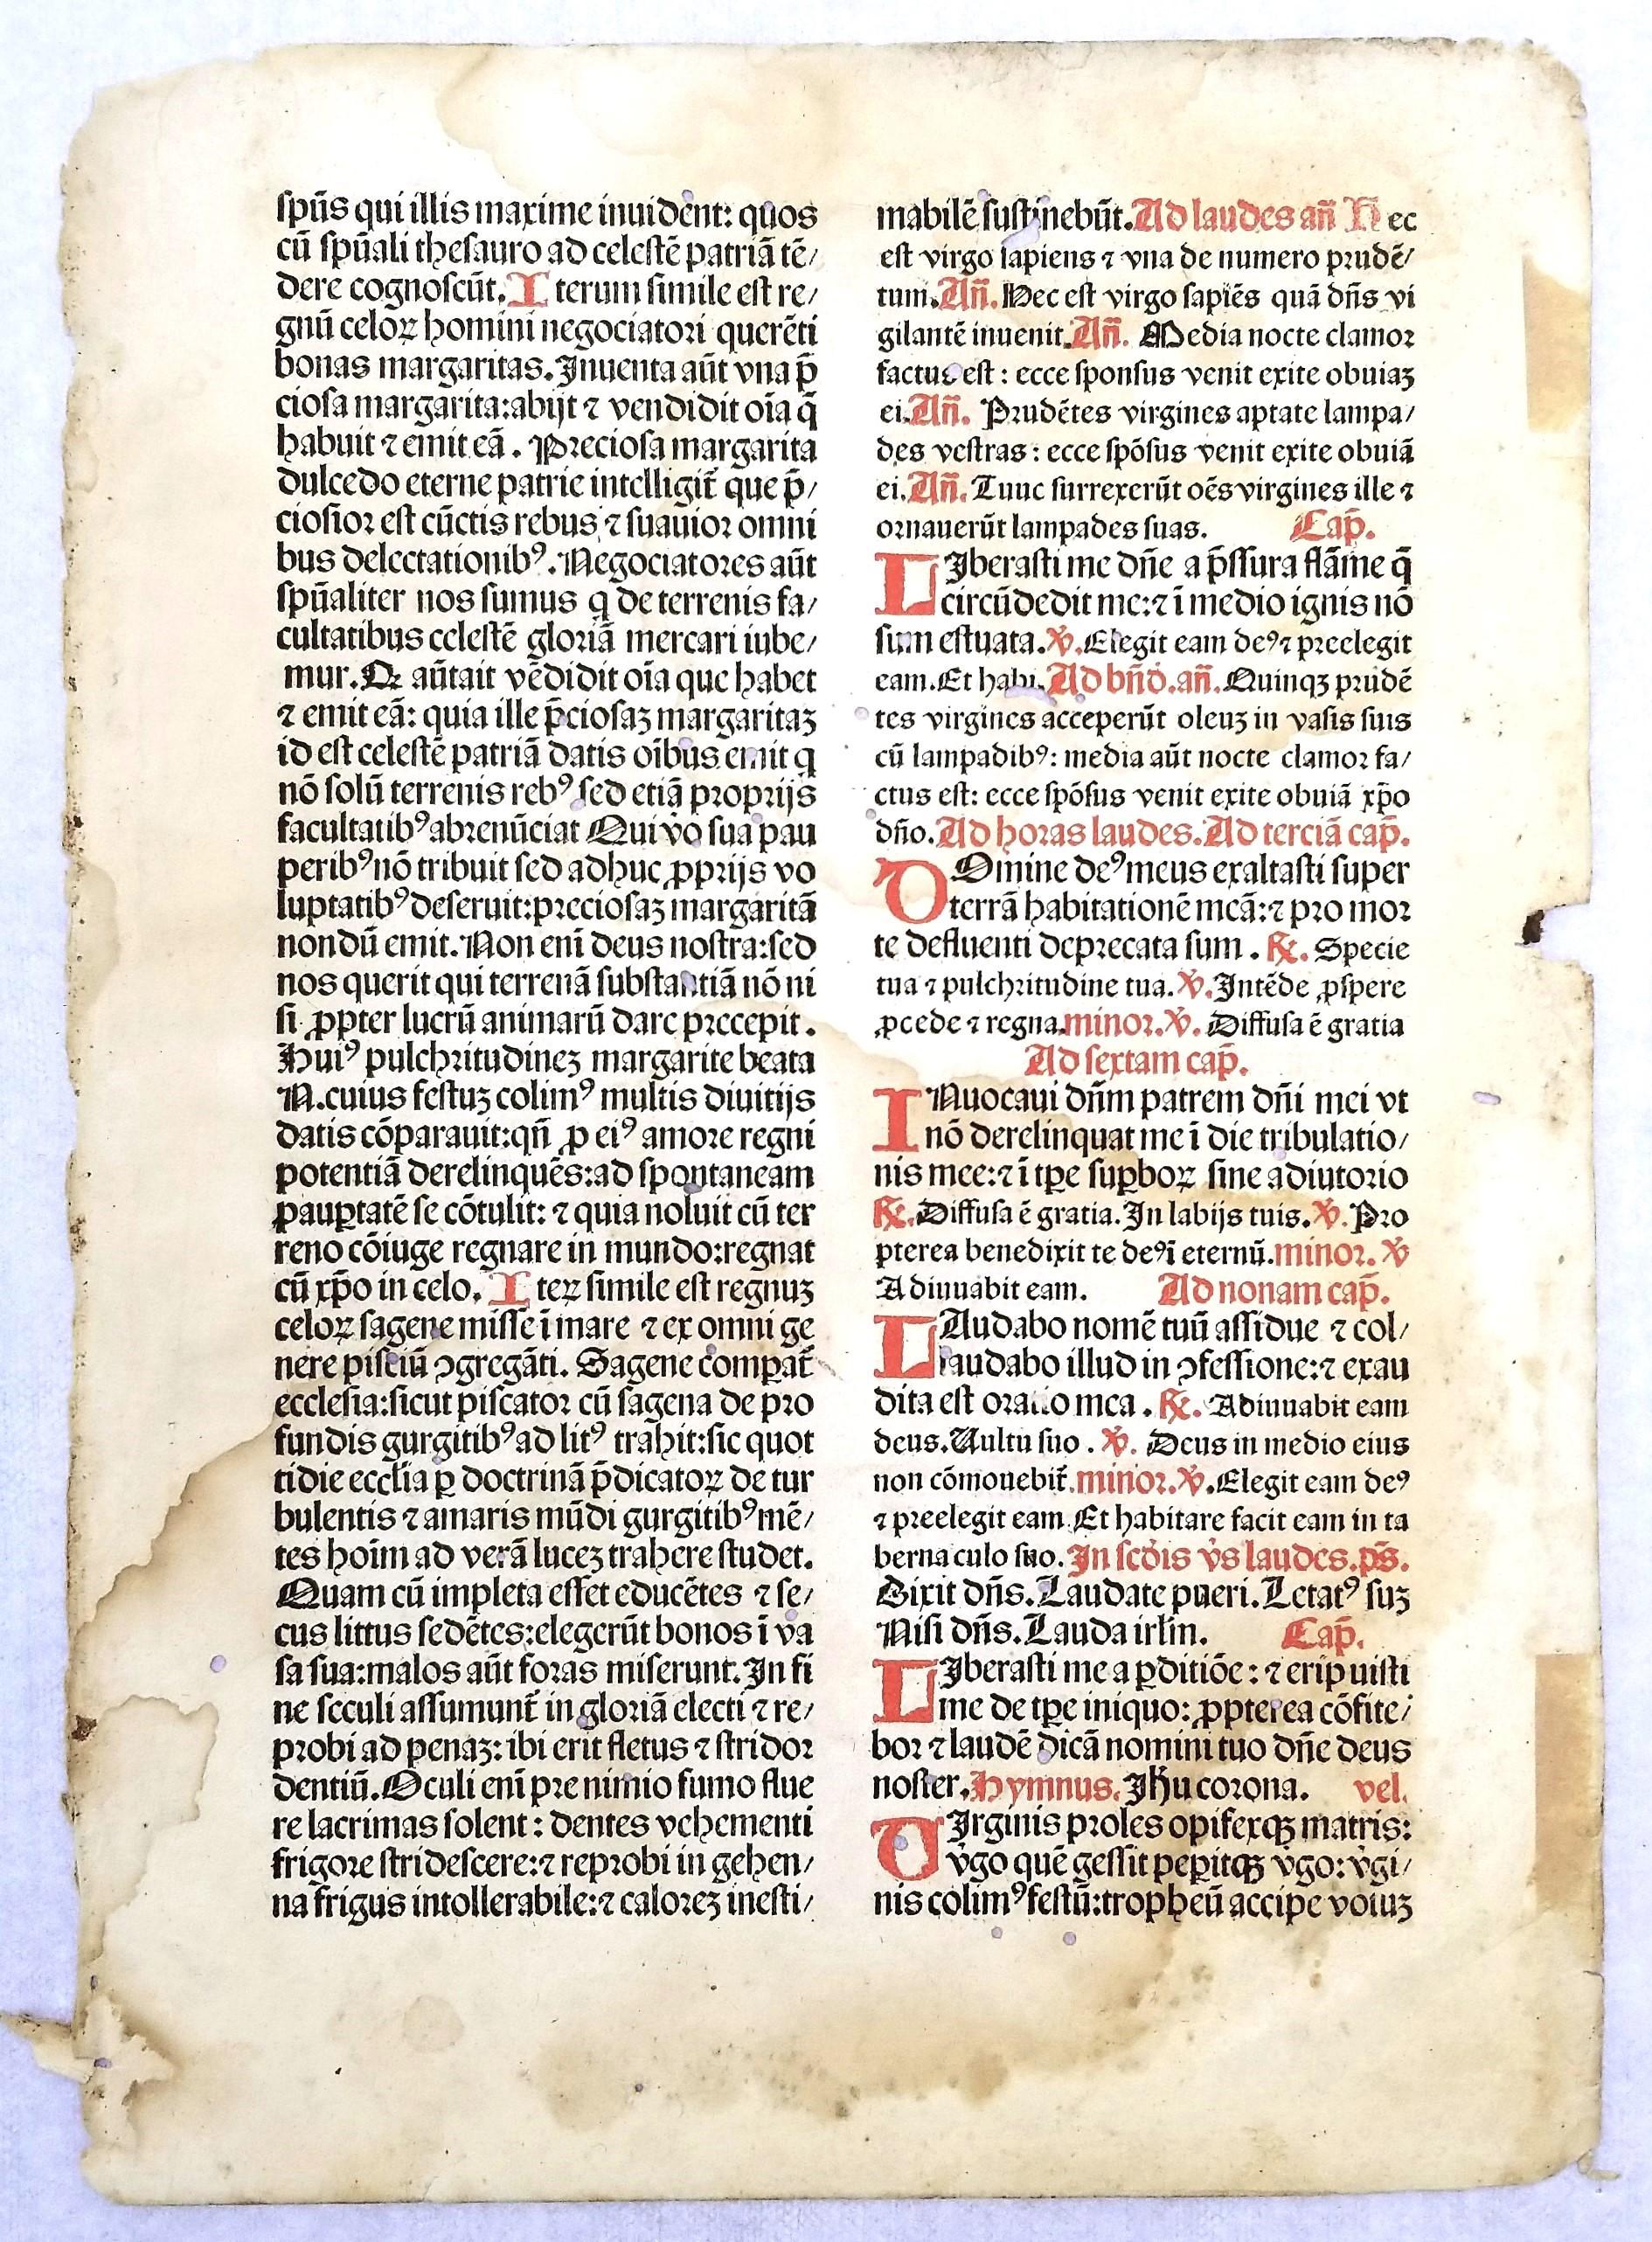 spūs qui illis maxime inuident: quos
cū spūali thesauro ad celestē patriā tē/
dere cognoscūt. I terum simile est re/
gnū celoꝝ homini negociatori querēti
bonas margaritas. Inuenta aūt vna p̄
ciosa margarita: abijt ⁊ vendidit oīa q̄
habuit ⁊ emit eā. Preciosa margarita
dulcedo eterne patrie intelligit̄ que p̄/
ciosior est cūctis rebus ⁊ suauior omni
bus delectationibꝰ. Negociatores aūt
spūaliter nos sumus q de terrenis fa/
cultatibus celestē gloriā mercari iube/
mur. Qꝛ aūt ait vēdidit oīa que habet
⁊ emit eā: quia ille p̄ciosaʒ margaritaʒ
id est celestē patriā datis oībus emit q
nō solū terrenis rebꝰ sed etiā proprijs
facultatibꝰ abrenūciat Qui v̊o sua pau
peribꝰ nō tribuit sed adhuc ꝓprijs vo
luptatibꝰ deseruit: preciosaʒ margaritā
nondū emit. Non enī deus nostra: sed
nos querit qui terrenā substantiā nō ni
si ꝓpter lucrū animarū dare precepit.
Huiꝰ pulchritudineʒ margarite beata
N. cuius festuʒ colimꝰ multis diuitijs
datis cōparauit: qn̄ ꝓ eiꝰ amore regni
potentiā derelinquēs: ad spontaneam
pauꝑtatē se cōtulit: ⁊ quia noluit cū ter
reno cōiuge regnare in mundo: regnat
cū xp̄o in celo. I teꝝ simile est regnuʒ
celoꝝ sagene misse ī mare ⁊ ex omni ge
nere pisciū ꝯgregāti. Sagene compat̄
ecclesia: sicut piscator cū sagena de pro
fundis gurgitibꝰ ad litꝰ trahit: sic quot
tidie eccl̄ia ꝑ doctrinā p̄dicatoꝝ de tur
bulentis ⁊ amaris mūdi gurgitibꝰ mē/
tes hoīm ad verā luceʒ trahere studet.
Quam cū impleta esset educētes ⁊ se/
cus littus sedētes: elegerūt bonos ī va
sa sua: malos aūt foras miserunt. In fi
ne seculi assumunt̄ in gloriā electi ⁊ re/
probi ad penaʒ: ibi erit fletus ⁊ stridor
dentiū. Oculi enī pre nimio fumo flue
re lacrimas solent: dentes vehementi
frigore stridescere: ⁊ reprobi in gehen/
na frigus intollerabile: ⁊ caloreʒ inesti/
mabilē sustinebūt. Ad laudes an̄ H ec
est virgo sapiens ⁊ vna de numero prudē/
tum. An̄. Hec est virgo sapiēs quā dn̄s vi
gilantē inuenit. An̄. Media nocte clamor
factus est: ecce sponsus venit exite obuiaʒ
ei. An̄. Prudētes virgines aptate lampa/
des vestras: ecce spōsus venit exite obuiā
ei. An̄. Tunc surrexerūt oēs virgines ille ⁊
ornauerūt lampades suas. Cap̄.
LIberasti me dn̄e a p̄ssura flāme q̄
circūdedit me: ⁊ ī medio ignis nō
sum estuata. ℣. Elegit eam deꝰ ⁊ preelegit
eam. Et habi. Ad bn̄d. an̄. Quinqʒ prudē
tes virgines acceperūt oleuʒ in vasis suis
cū lampadibꝰ: media aūt nocte clamor fa/
ctus est: ecce spōsus venit exite obuiā xp̄o
dn̄o. Ad horas laudes. Ad terciā cap̄.
DOmine deꝰ meus exaltasti super
terrā habitationē meā: ⁊ pro mor
te defluenti deprecata sum. ℟. Specie
tua ⁊ pulchritudine tua. ℣. Intēde ꝓspere
ꝓcede ⁊ regna. minor. ℣. Diffusa ē gratia
Ad sextam cap̄.
INuocaui dn̄m patrem dn̄i mei vt
nō derelinquat me ī die tribulatio/
nis mee: ⁊ ī tꝑe suꝑboꝝ sine adiutorio
℟. Diffusa ē gratia. In labijs tuis. ℣. Pro
pterea benedixit te deꝰ ī eternū. minor. ℣
Adiuuabit eam. Ad nonam cap̄.
LAudabo nomē tuū assidue ⁊ col/
laudabo illud in ꝯfessione: ⁊ exau
dita est oratio mea. ℟. Adiuuabit eam
deus. Uultu suo. ℣. Deus in medio eius
non cōmouebit̄. minor. ℣. Elegit eam deꝰ
⁊ preelegit eam Et habitare facit eam in ta
bernaculo suo. In scd̄is v̄s laudes. ps̄.
Dixit dn̄s. Laudate pueri. Letatꝰ suʒ
Nisi dn̄s. Lauda irl̄m. Cap̄.
LIberasti me a ꝑditiōe: ⁊ eripuisti
me de tꝑe iniquo: ꝓpterea cōfite/
bor ⁊ laudē dicā nomini tuo dn̄e deus
noster. Hymnus. Jh̄u corona. vel.
VIrginis proles opifexqʒ matris:
v̊go quē gessit peꝑitqʒ v̊go: v̊gi/
nis colimꝰ festū: tropheū accipe votuʒ